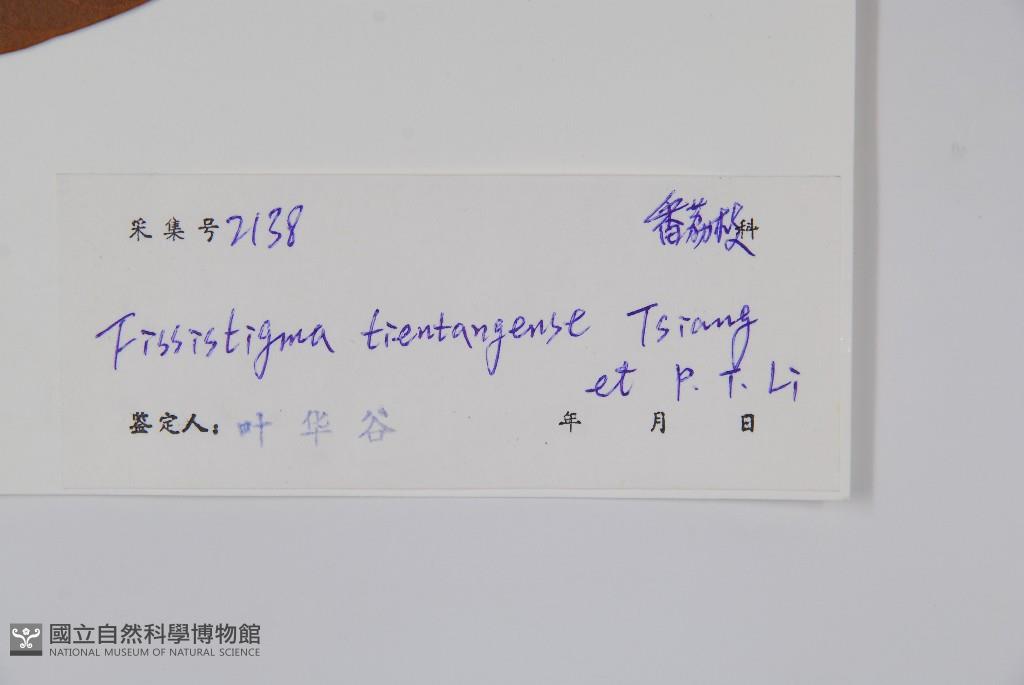 采集号 2138 番荔枝科
Fissistigma tientangense Tsiang
et P. T. Li
鉴定人: 叶华谷 年 月 日
國立自然科學博物館
NATIONAL MUSEUM OF NATURAL SCIENCE